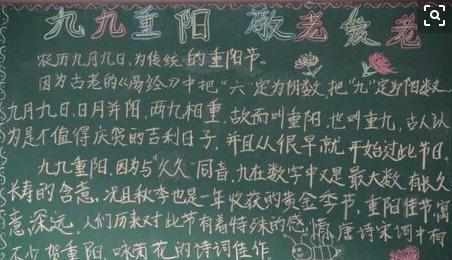 九九重阳 敬老爱老
农历九月九日,为传统的重阳节。
因为古老的《易经》中把“六”定为阴数,把“九”定为阳数
九月九日,日月并阳,两九相重,故而叫重阳,也叫重九,古人认
为是个值得庆贺的吉利日子,并且从很早就开始过此节日。
九九重阳,因为与“久久”同音,九在数字中又是最大数,有长久
长寿的含意,况且秋季也是一年收获的黄金季节,重阳佳节,寓
意深远,人们历来对此节有着特殊的感情,唐诗宋词中有
不少贺重阳,咏菊花的诗词佳作。